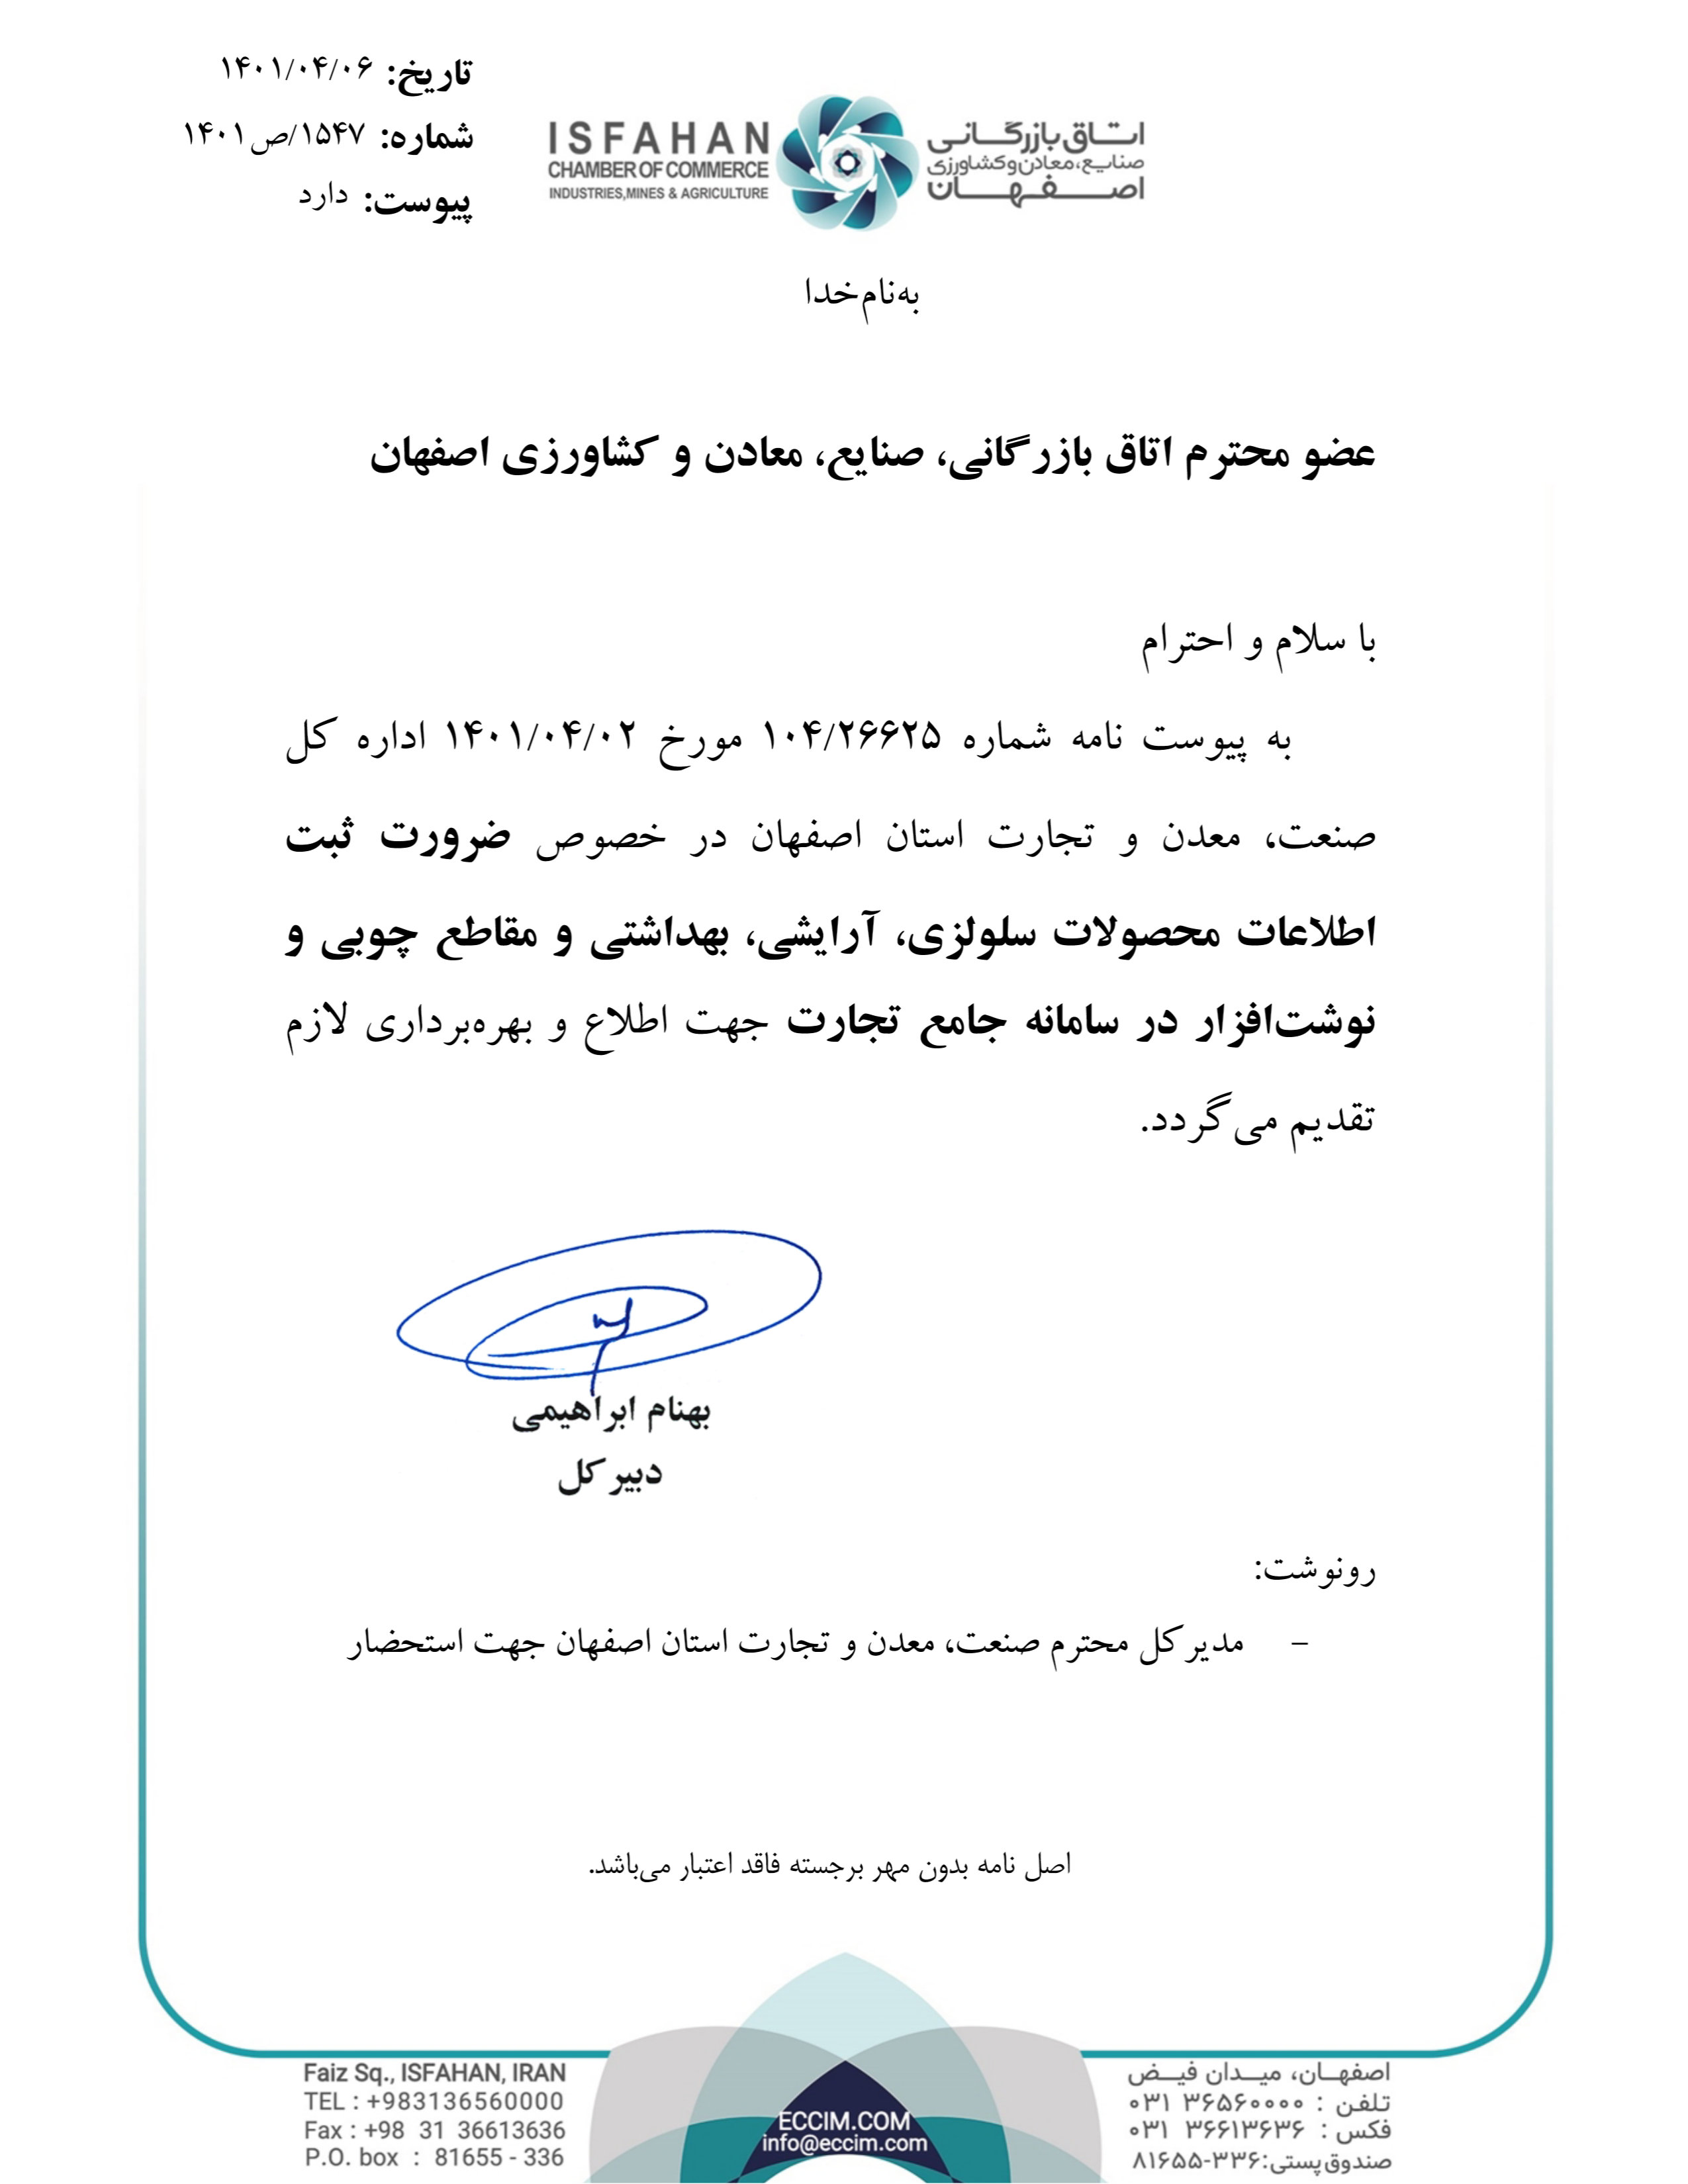 تاریخ: ۱۴۰۱/۰۴/۰۶
شماره: ۱۵۴۷/ص۱۴۰۱
پیوست: دارد
ISFAHAN
CHAMBER OF COMMERCE
INDUSTRIES,MINES & AGRICULTURE
اتـاق بازرگـانی
صنایع،معادن‌وکشاورزی
اصـفـهـان
به‌نام‌خدا
عضو محترم اتاق بازرگانی، صنایع، معادن و کشاورزی اصفهان
با سلام و احترام
به پیوست نامه شماره ۱۰۴/۲۶۶۲۵ مورخ ۱۴۰۱/۰۴/۰۲ اداره کل
صنعت، معدن و تجارت استان اصفهان در خصوص ضرورت ثبت
اطلاعات محصولات سلولزی، آرایشی، بهداشتی و مقاطع چوبی و
نوشت‌افزار در سامانه جامع تجارت جهت اطلاع و بهره‌برداری لازم
تقدیم می‌گردد.
بهنام ابراهیمی
دبیرکل
رونوشت:
- مدیرکل محترم صنعت، معدن و تجارت استان اصفهان جهت استحضار
اصل نامه بدون مهر برجسته فاقد اعتبار می‌باشد.
Faiz Sq., ISFAHAN, IRAN
TEL : +983136560000
Fax : +98 31 36613636
P.O. box : 81655 - 336
ECCIM.COM
info@eccim.com
اصفهـان، میـدان فیـض
تلفن : ۳۶۵۶۰۰۰۰ ۰۳۱
فکس : ۳۶۶۱۳۶۳۶ ۰۳۱
صندوق‌پستی:۳۳۶-۸۱۶۵۵